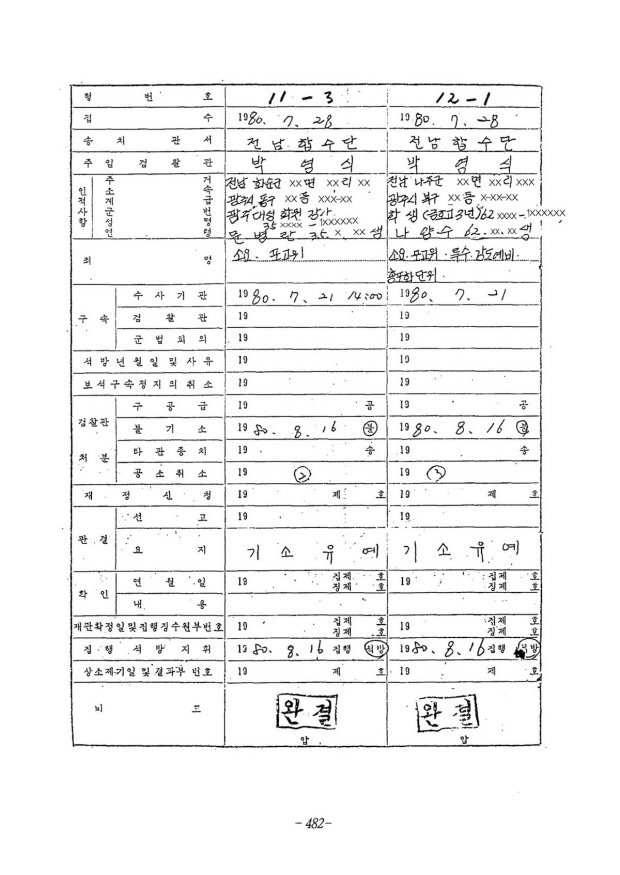 형 번 호 11-3 12-1
접 수 1980. 7. 28 1980. 7. 28
송 치 관 서 전남합수단 전남합수단
주 임 검 찰 관 박 영 식 박 영 식
인적사항 주 거 전남 화순군 xx면 xx리 xx 전남 나주군 xx면 xx리 xxx
소 속 광주시 동구 xx동 xxx-xx 광주시 북구 xx동 x-xx-xx
계 급
군 번 xxxx-xxxxxxx
성 명
연 령 문 병 란 35. x. xx생 나 양 수 62. xx. xx생
죄 명 소요. 포고위 소요. 포고위. 특수강도예비.
총포화단위.
구 속 수 사 기 관 1980. 7. 21 14:00 1980. 7. 21
검 찰 관 19 19
군 법 회 의 19 19
석 방 년 월 일 및 사 유 19 19
보 석 구 속 정 지 의 취 소 19 19
검찰관 처 분 구 공 급 19 공 19 공
불 기 소 1980. 8. 16 불 1980. 8. 16 불
타 관 송 치 19 송 19 송
공 소 취 소 19 ② 19 ③
재 정 신 청 19 제 호 19 제 호
판 결 선 고 19 19
요 지 기 소 유 예 기 소 유 예
확 인 연 월 일 19 집제 호 19 집제 호
징제 호 징제 호
내 용
재판확정일및집행징수원부번호 19 집제 호 19 집제 호
징제 호 징제 호
집 행 석 방 지 휘 1980. 8. 16 집행 석방 1980. 8. 16 집행 석방
상소제기일 및 결과부 번호 19 제 호 19 제 호
비 고 완결 완결
압 압
- 482 -